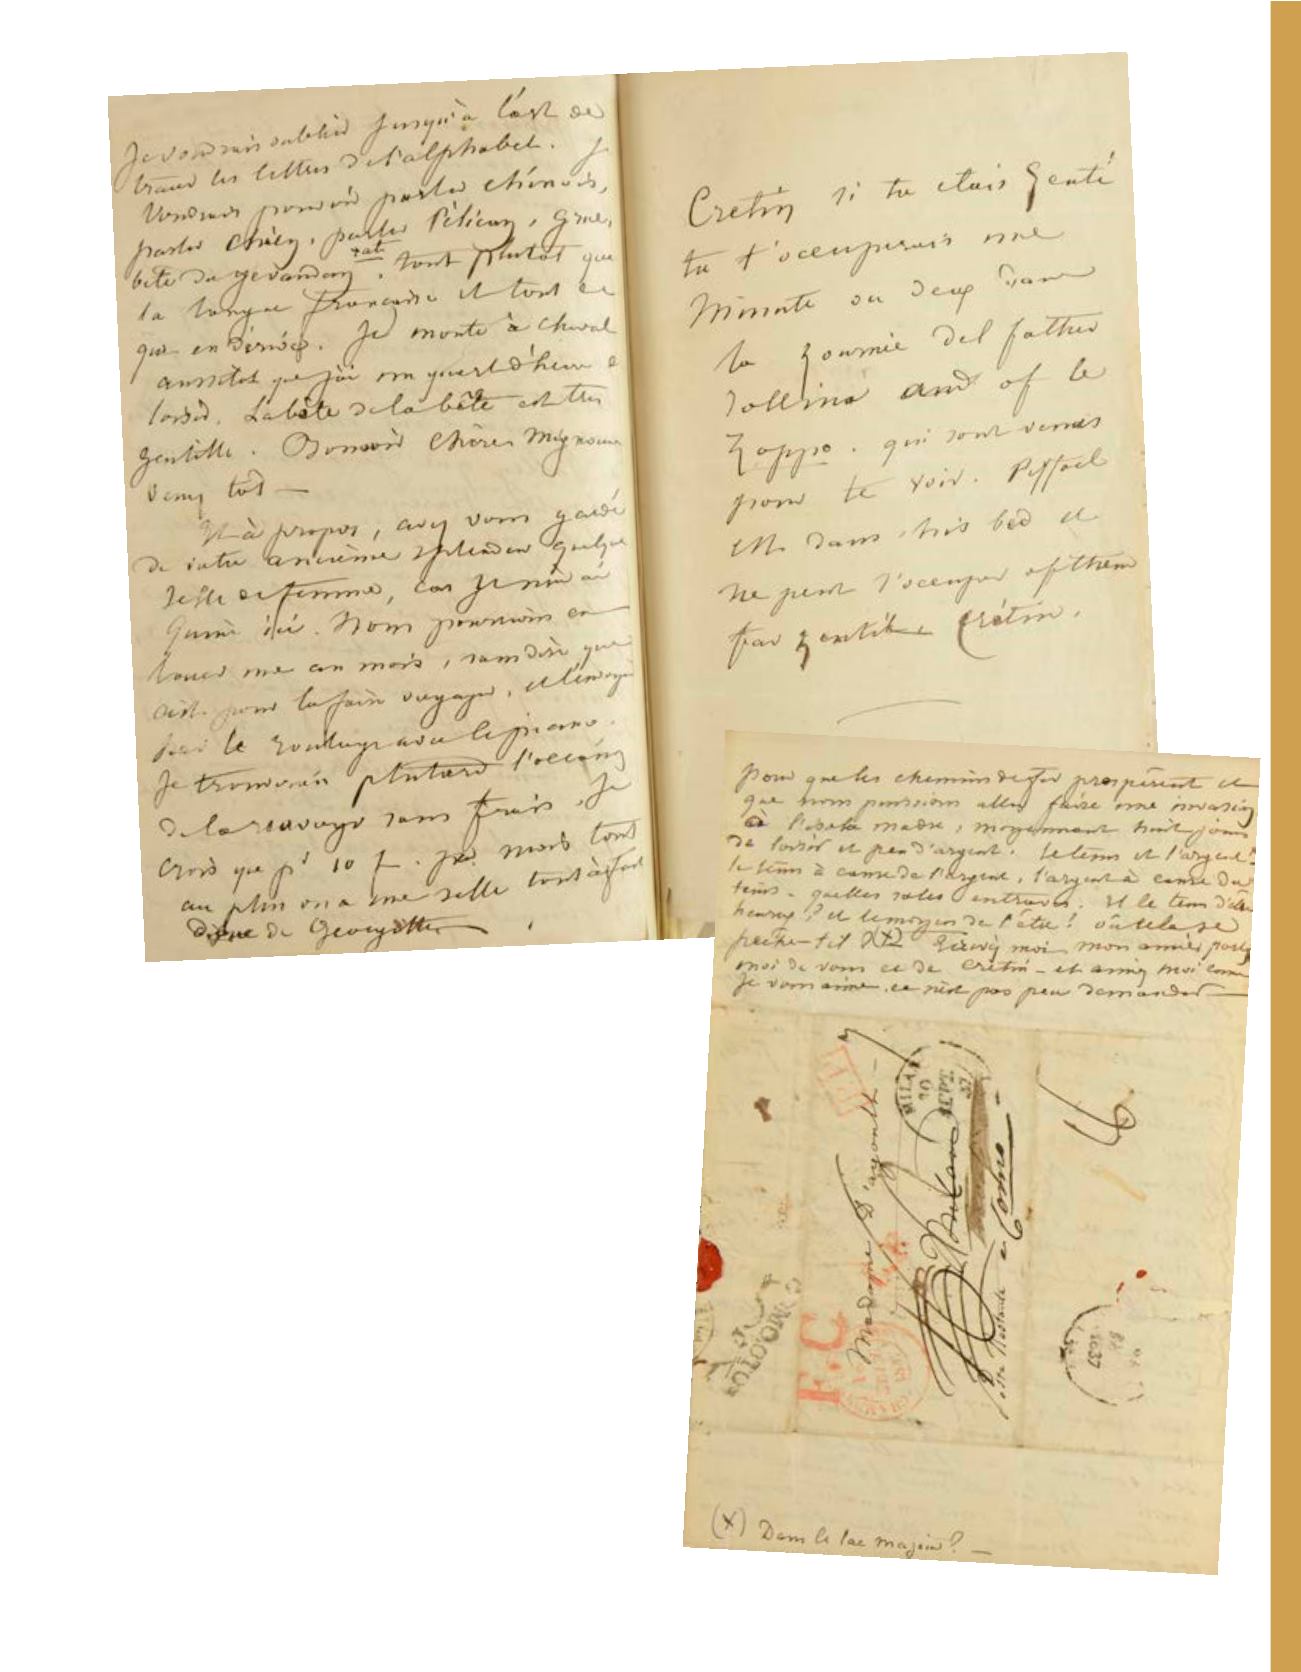 Je voudrais oublier jusqu'à l'art de
tracer les lettres de l'alphabet. Je
Voudrais pouvoir parler chinois,
parler chien, parler Pélican, grue,
bête du gevaudan, rat
tout plutot que
la langue française et tout ce
qui en dérive. Je monte à cheval
aussitot que j'ai un quart d'heure de
loisir. La bête de la bête est très
gentille. Bonsoir Chères Mignonnes
venez tot —
Et à propos, avez vous gardé
de votre ancienne splendeur quelque
selle de femme, car je n'en ai
qu'une ici. Nous pourrions en
louer une au mois, sans dire que
c'est pour la faire voyager, et l'envoyer
par le roulage avec le piano.
Je trouverais plutard l'occasion
de la renvoyer sans frais. Je
crois que pr 10 f. par mois tout
au plus on a une selle tout à fait
digne de Georgette
Cretin si tu etais Zenti
tu t'occuperais une
Minute ou deux dans
la Zournée del father
Sollina and of le
Zoppo. qui sont venus
pour te voir. Piffoel
est dans his bed et
ne peut s'occuper of them
fas zentil Crétin.
pour que les chemins de fer prospèrent et
que nous puissions aller faire une invasion
à l'isola madre, moyennant huit jours
de loisir et peu d'argent. Le tems et l'argent!
le tems à cause de l'argent, l'argent à cause du
tems — quelles sotes entraves. Et le tems d'être
heureux? et le moyen de l'être! où cela se
pêche-t-il (X)? Ecrivez moi mon amie, parlez
moi de vous et de Crétin — et aimez moi comme
Je vous aime. ce n'est pas peu demander —
Madame D'agoult —
Milano
poste Restante à Como —
MILANO
10
SEPT.
37
16
F.C
1837
(X) Dans le lac majeur? —